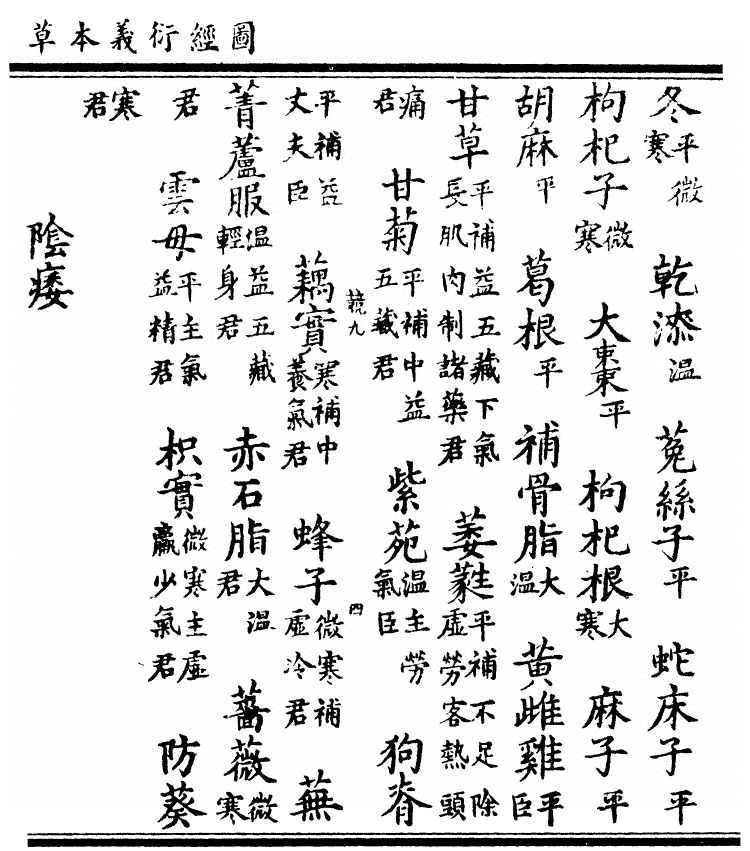 圖經衍義本草
冬平微寒 乾漆溫 菟絲子平 蛇床子平
枸杞子微寒 大棗平 枸杞根大寒 麻子平
胡麻平 葛根平 補骨脂大溫 黃雌雞平臣
甘草平補益五藏下氣長肌肉制諸藥君 萎蕤平補不足除虛勞客熱頭
痛君 甘菊平補中益五藏君 紫苑溫主勞氣臣 狗脊
兢九 四
平補益丈夫臣 藕實寒補中養氣君 蜂子微寒補虛冷君 蕪
菁蘆服溫益五藏輕身君 赤石脂大溫君 薔薇微寒
君 雲母平主氣益精君 枳實微寒主虛羸少氣君 防葵
寒君
陰痿